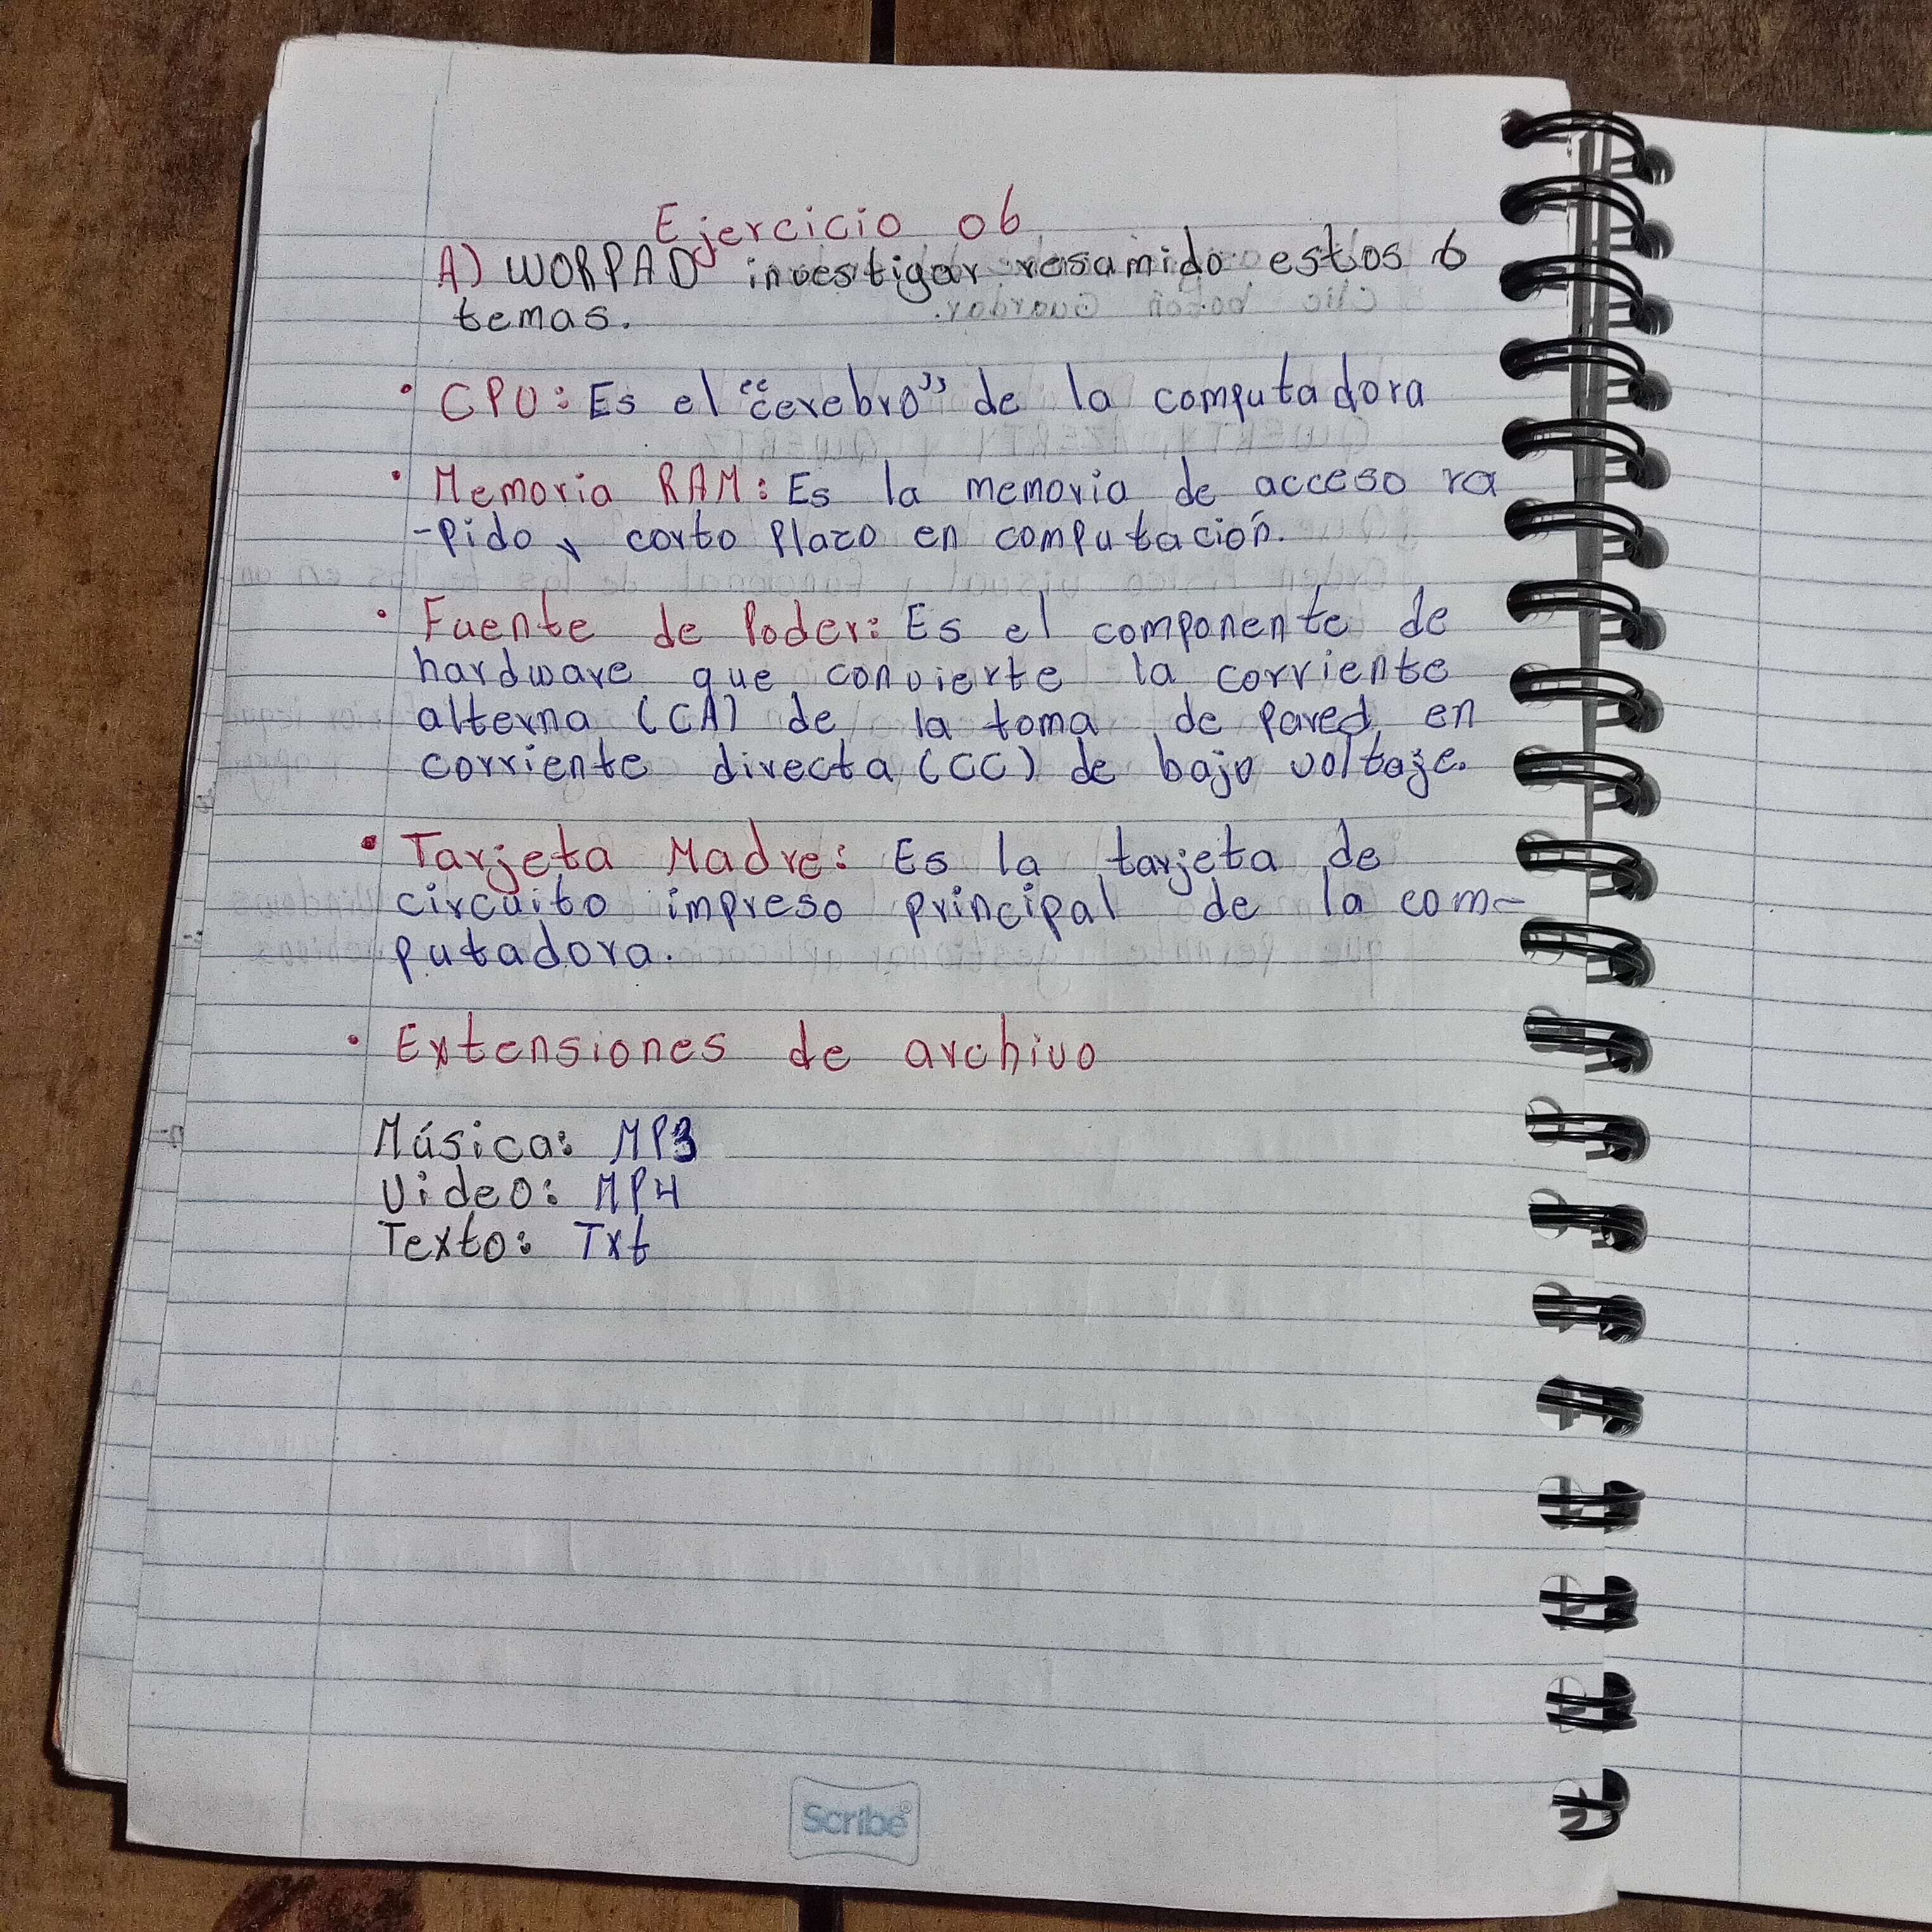 Ejercicio 06
A) WORPAD investigar resumido estos 6
temas.
• CPU: Es el "cerebro" de la computadora
• Memoria RAM: Es la memoria de acceso ra
-pido y corto plazo en computación.
• Fuente de Poder: Es el componente de
hardware que convierte la corriente
alterna (CA) de la toma de pared en
corriente directa (CC) de bajo voltaje.
• Tarjeta Madre: Es la tarjeta de
circuito impreso principal de la com-
putadora.
• Extensiones de archivo
Música: MP3
Video: MP4
Texto: Txt
Scribe®